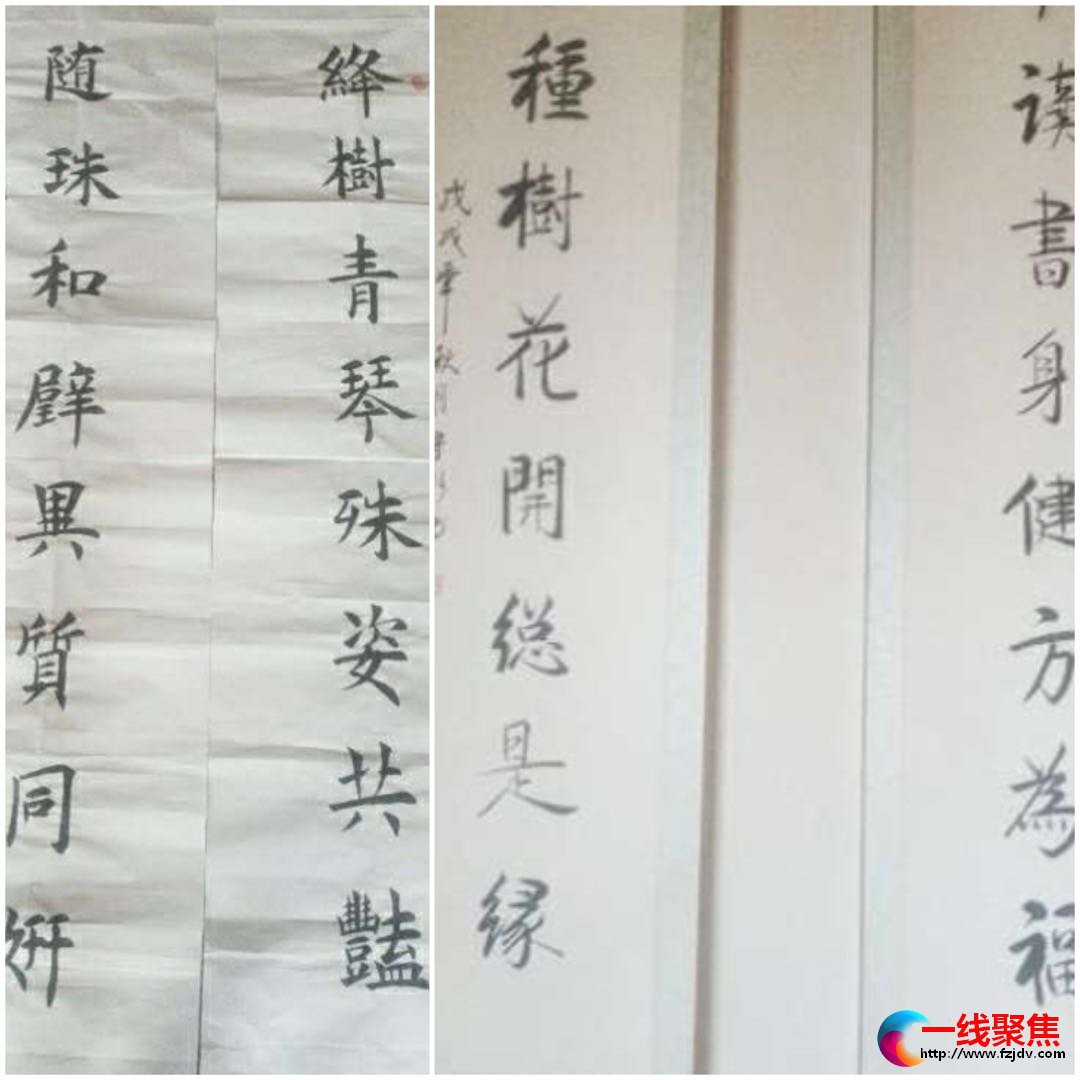 絳樹青琴殊姿共豔
随珠和璧異質同妍
读書身健方為福
種樹花開総是緣
戊戌年秋月
一线聚焦
http://www.fzjdv.com